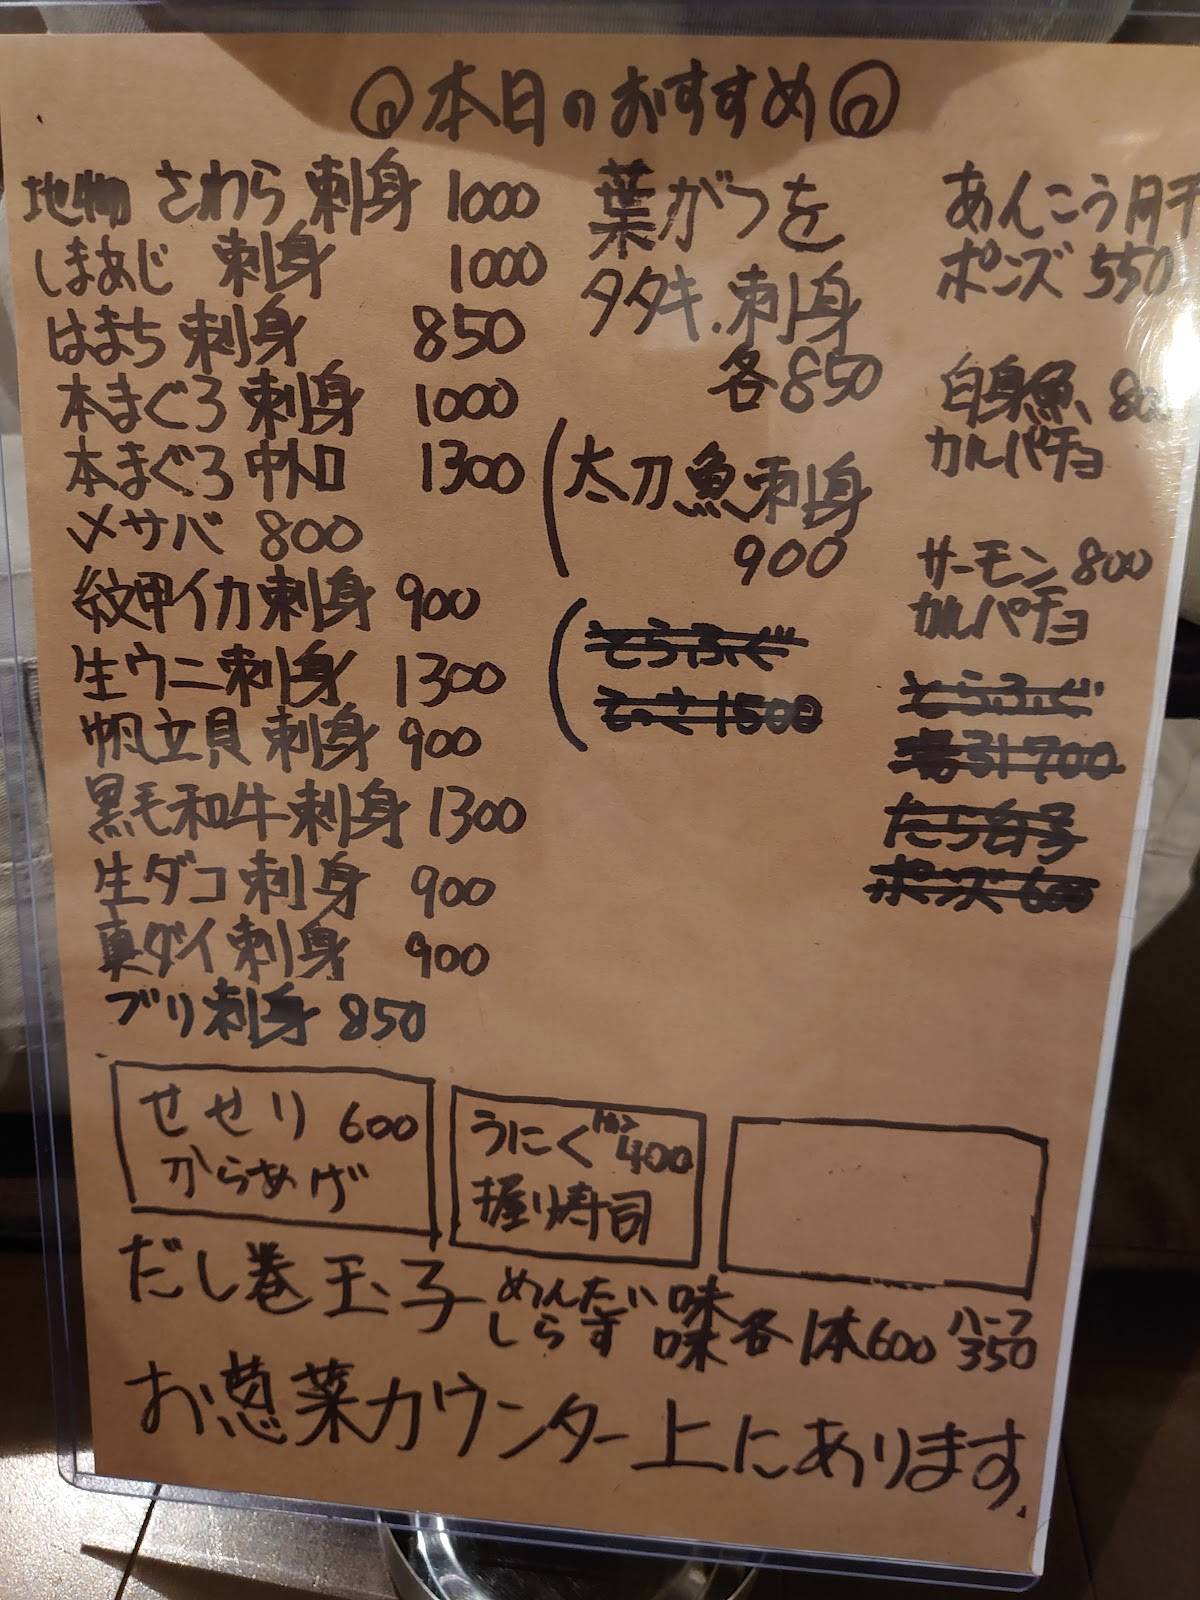 本日のおすすめ
地物 さわら 刺身 1000
しまあじ 刺身 1000
はまち 刺身 850
本まぐろ 刺身 1000
本まぐろ 中トロ 1300
〆サバ 800
紋甲イカ刺身 900
生ウニ刺身 1300
帆立貝刺身 900
黒毛和牛刺身 1300
生ダコ刺身 900
真ダイ刺身 900
ブリ刺身 850
葉がつを
タタキ.刺身
各850
太刀魚刺身
900
とらふぐ
てっさ1500
あんこう肝
ポンズ 550
白身魚 800
カルパチョ
サーモン 800
カルパチョ
とらふぐ
700
たら白子
ポンズ 600
せせり 600
からあげ
うにく 400
握り寿司
だし巻玉子 めんたい味
しらす味 各1本600 ハーフ350
お惣菜カウンター上にあります